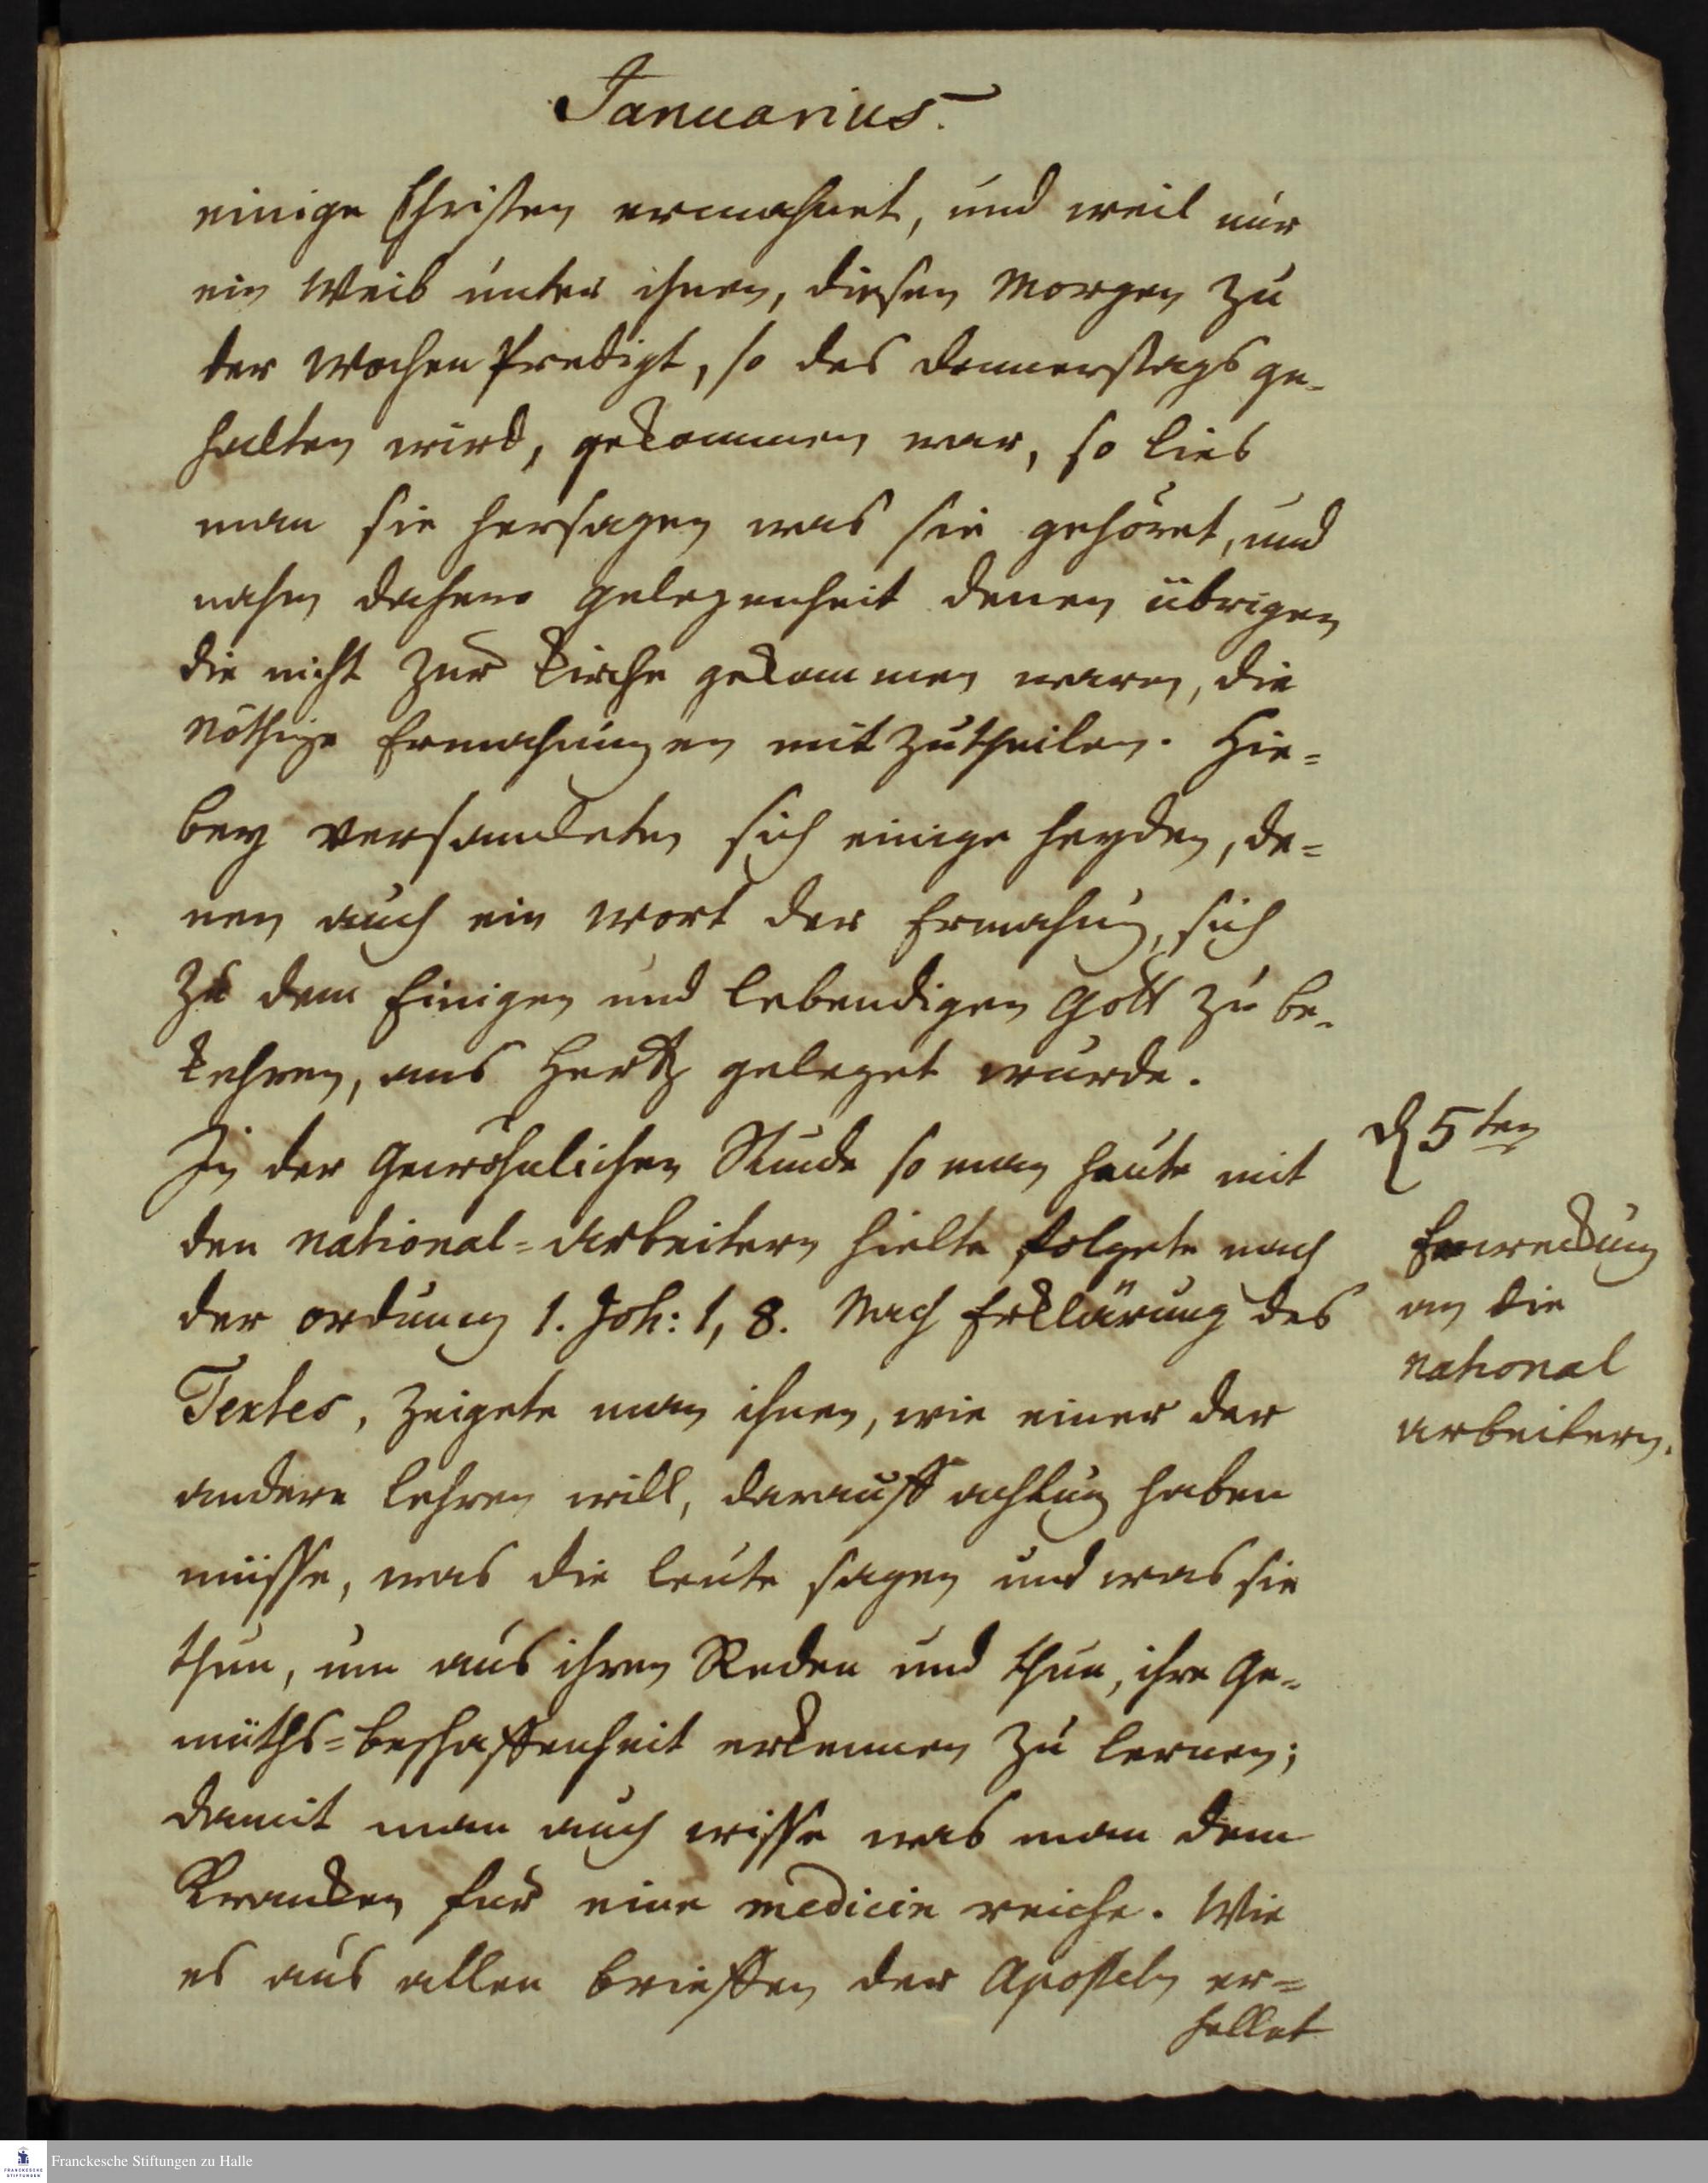 Januarius.
einige Christen ermahnet, und weil nur
ein Weib unter ihnen, diesen Morgen zu
der Wochen Predigt, so des Donnerstags ge-
halten wird, gekommen war, so lies
man sie hersagen was sie gehöret, und
nahm dahero gelegenheit denen übrigen
die nicht zur Kirche gekommen waren, die
nöthige Ermahnungen mitzutheilen. Hie=
bey versamleten sich einige Heyden, de=
nen auch ein Wort der Ermahnung, sich
zu dem Einigen und lebendigen Gott zu be-
kehren, ans Hertz geleget wurde.
In der Gewöhnlichen Stunde so man heute mit
den national=arbeitern hielte folgete nach
der ordnung 1. Joh: 1, 8. Nach Erklärung des
Textes, zeigete man ihnen, wie einer der
andere lehren will, darauff achtung haben
müsse, was die leute sagen und was sie
thun, um aus ihren Reden und thun, ihre Ge-
müths=beschaffenheit erkennen zu lernen;
damit man auch wisse was man dem
Krancken für eine medicin reiche. Wie
es aus allen brieffen der Aposteln er=
hellet
d 5ten
Erweckung
an die
national
arbeitern.
Franckesche Stiftungen zu Halle
FRANCKESCHE
STIFTUNGEN